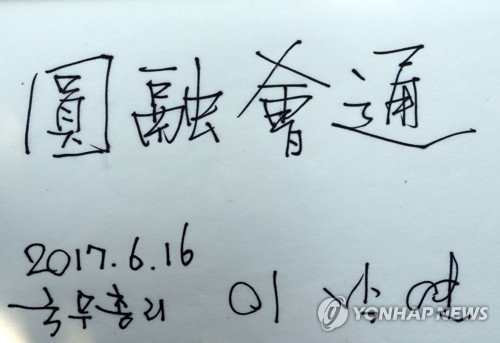 圓融會通
2017.6.16
국무총리 이낙연
YONHAP NEWS